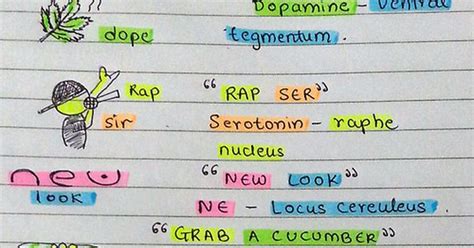 Dopamine - Ventral
dope tegmentum.
Rap "RAP SER"
sir Serotonin - raphe
nucleus
new "NEW LOOK"
look NE - Locus cereuleus.
"GRAB A CUCUMBER"